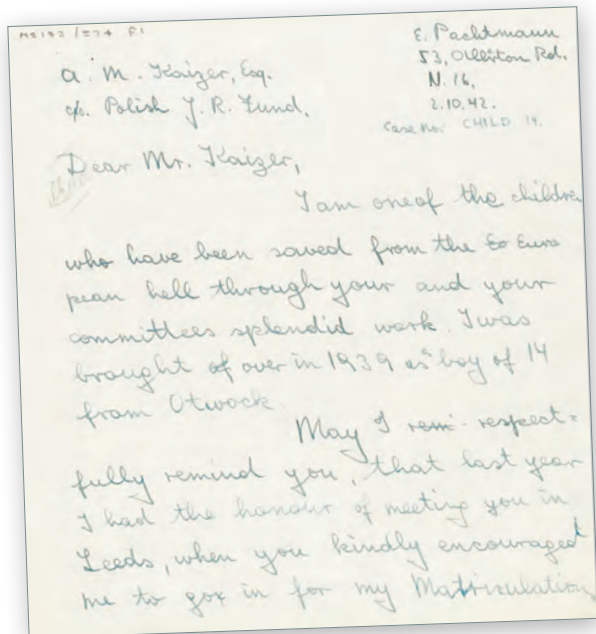 MS 183/574 F1
E. Pachtmann
53, Ollerton Rd.
N. 16,
2.10.42.
Case No. CHILD 14.
A. M. Kaizer, Esq.
c/o. Polish J. R. Fund.
Dear Mr. Kaizer,
I am one of the children
who have been saved from the Eo Euro
pean hell through your and your
committees splendid work. I was
brought of over in 1939 as a boy of 14
from Otwock.
May I rem- respect=
fully remind you, that last year
I had the honour of meeting you in
Leeds, when you kindly encouraged
me to gox in for my Matriculation.